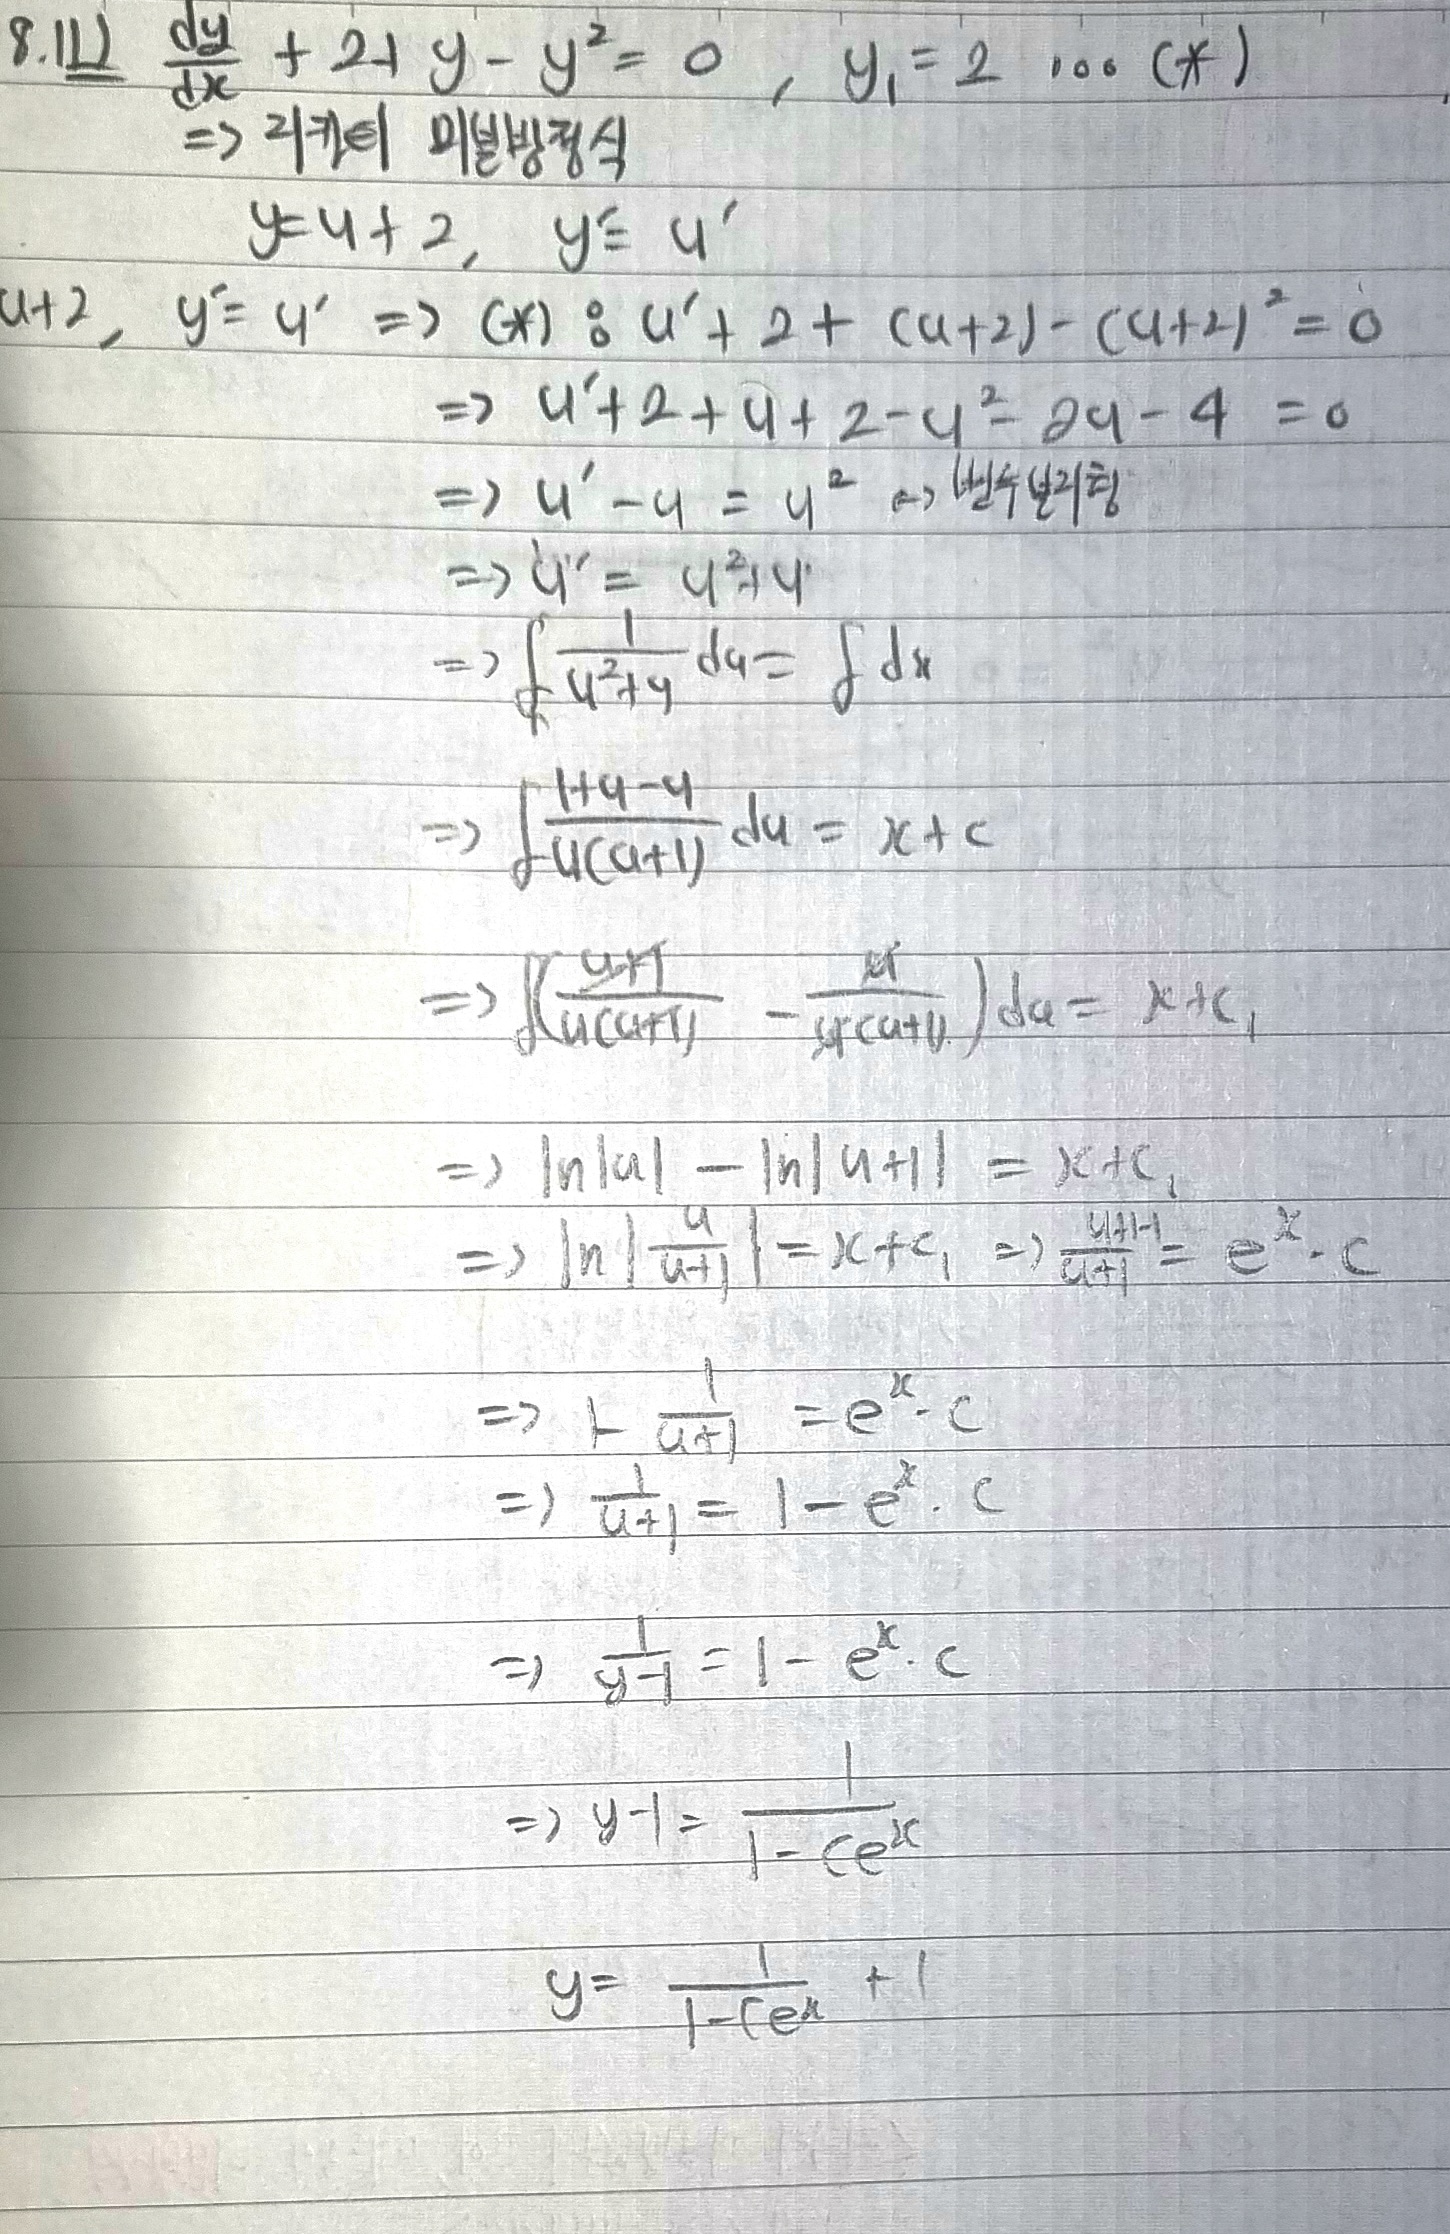 8.11) dy/dx + 2 + y - y² = 0 , y₁ = 2 ... (*)
=> 리카티 미분방정식
y = u + 2, y' = u'
u+2, y' = u' => (*) : u' + 2 + (u+2) - (u+2)² = 0
=> u' + 2 + u + 2 - u² - 2u - 4 = 0
=> u' - u = u² ~> 변수분리형
=> u' = u² + u
=> ∫ 1/(u²+u) du = ∫ dx
=> ∫ (1+u-u)/(u(u+1)) du = x + c
=> ∫( (u+1)/(u(u+1)) - u/(u(u+1)) ) du = x + c₁
=> ln|u| - ln|u+1| = x + c₁
=> ln|u/(u+1)| = x + c₁ => (u+1-1)/(u+1) = eˣ · c
=> 1 - 1/(u+1) = eˣ · c
=> 1/(u+1) = 1 - eˣ · c
=> 1/(y-1) = 1 - eˣ · c
=> y - 1 = 1/(1 - Ceˣ)
y = 1/(1 - Ceˣ) + 1